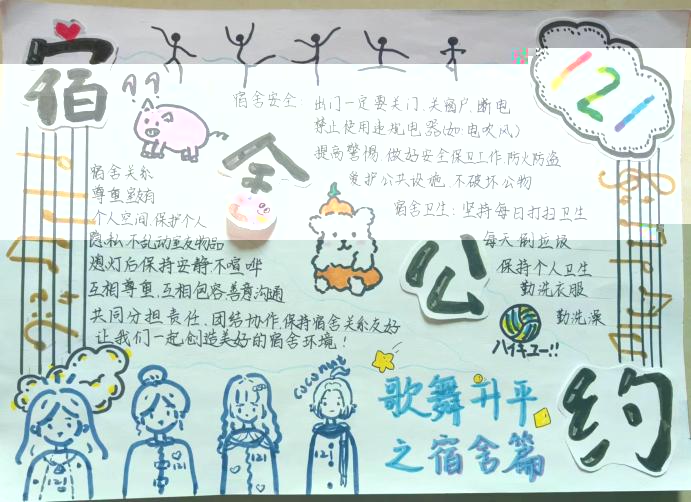 宿舍公约
121
宿舍安全：出门一定要关门、关窗户、断电
禁止使用违规电器(如:电吹风)
提高警惕 做好安全保卫工作,防火防盗
爱护公共设施,不破坏公物
宿舍卫生：坚持每日打扫卫生
每天倒垃圾
保持个人卫生
勤洗衣服
勤洗澡
宿舍关系
尊重室友有
个人空间,保护个人
隐私,不乱动室友物品
熄灯后保持安静,不喧哗
互相尊重,互相包容,善意沟通
共同分担责任、团结协作,保持宿舍关系友好
让我们一起创造美好的宿舍环境！
ハイキュー!!
coconut
歌舞升平
之宿舍篇
121
121
121
121